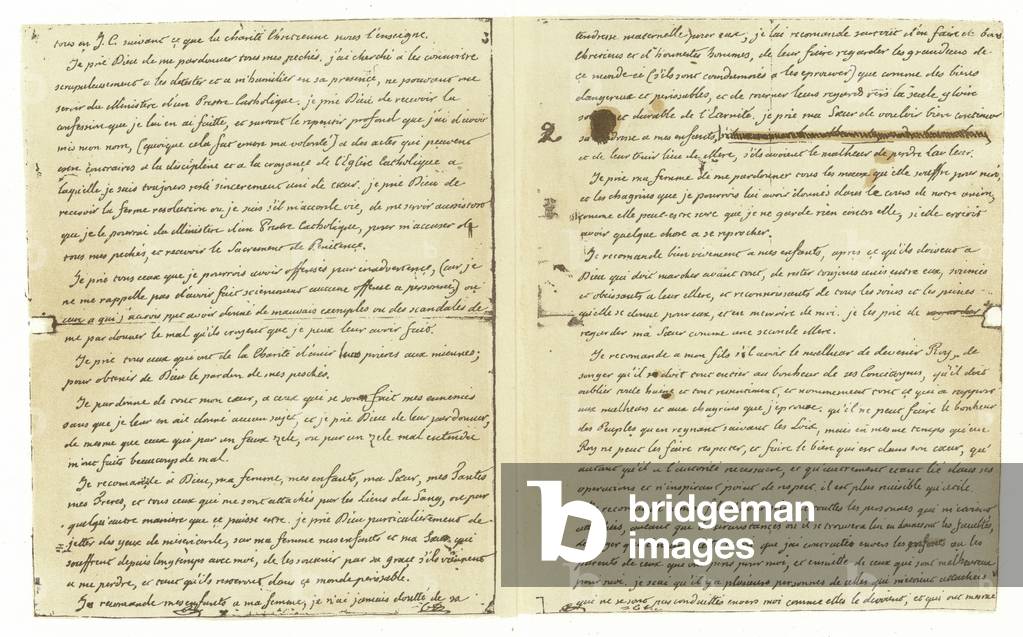 tous en J. C. suivant ce que la charité Chretienne nous l'enseigne.
3
Je prie Dieu de me pardonner tous mes pechés, j'ai cherché a les connoitre
scrupuleusement a les detester et a m'humilier en sa presence, ne pouvant me
servir du Ministere d'un Prestre Catholique, je prie Dieu de recevoir la
confession que je lui en ai faitte, et surtout le repentir profond que j'ai d'avoir
mis mon nom, (quoique cela fut contre ma volonté) a des actes qui peuvent
estre contraires a la discipline et a la croyance de l'Eglise Catholique a
laquelle je suis toujours resté sincerement uni de cœur. je prie Dieu de
recevoir la ferme resolution ou je suis s'il m'accorde vie, de me servir aussitost
que je le pourrai du Ministere d'un Prestre Catholique, pour m'accuser de
tous mes pechés, et recevoir le Sacrement de Penitence.
Je prie tous ceux que je pourrois avoir offensés par inadvertence, (car je
ne me rappelle pas d'avoir fait sciemment aucune offense a personne) ou
ceux a qui j'aurois pue avoir donné de mauvais exemples ou des scandales de
me pardonner le mal qu'ils croyent que je peux leur avoir fait.
Je prie tous ceux qui ont de la Charité d'unir leurs prieres aux miennes;
pour obtenir de Dieu le pardon de mes pechés.
Je pardonne de tout mon cœur, a ceux qui se sont fait mes ennemis
sans que je leur en aie donné aucun sujet, et je prie Dieu de leur pardonner,
de mesme que ceux qui par un faux zele, ou par un zele mal entendu
m'ont faits beaucoup de mal.
Je recomande a Dieu, ma femme, mes enfants, ma Sœur, mes Tantes
mes Freres, et tous ceux qui me sont attachés par les Liens du Sang, ou par
quelqu'autre maniere que ce puisse estre. je prie Dieu particulierement de
jetter des yeux de misericorde, sur ma femme mes enfants et ma Sœur qui
souffrent depuis longtemps avec moi, de les soutenir par sa grace s'ils viennent
a me perdre, et tant qu'ils resteront dans ce monde perisable.
Je recomande mes enfants a ma femme, je n'ai jamais doutté de sa
tendresse maternelle pour eux, je lui recomande surtout d'en faire de bons
Chretiens et d'honnetes hommes, de leur faire regarder les grandeurs de
ce monde-ci (s'ils sont condamnés a les eprouver) que comme des biens
dangereux et perissables, et de tourner leurs regards vers la seule gloire
et durable de l'Eternité. je prie ma Sœur de vouloir bien continuer
2
sa a mes enfants,
et de leur tenir lieu de Mere, s'ils avoient le malheur de perdre la leur.
Je prie ma femme de me pardonner tous les maux qu'elle souffre pour moi,
et les chagrins que je pourrois lui avoir donnés dans le cours de notre union,
comme elle peut estre sure que je ne garde rien contre elle, si elle croioit
avoir quelque chose a se reprocher.
Je recomande bien vivement a mes enfants, apres ce qu'ils doivent a
Dieu qui doit marcher avant tout, de rester toujours unis entre eux, soumis
et obeissants a leur Mere, et reconnoissants de tous les soins et les peines
qu'elle se donne pour eux, et en memoire de moi. je les prie de regarder
regarder ma Sœur comme une seconde Mere.
Je recomande a mon fils s'il avoit le malheur de devenir Roy, de
songer qu'il se doit tout entier au bonheur de ses Concitoyens, qu'il doit
oublier toute haine et tout ressentiment, et nommement tout ce qui a rapport
aux malheurs et aux chagrins que j'eprouve. qu'il ne peut faire le bonheur
des Peuples qu'en regnant suivant les Loix, mais en mesme temps qu'un
Roy ne peut les faire respecter, et faire le bien qui est dans son cœur, qu'
autant qu'il a l'autorité necessaire, et qu'autrement etant lié dans ses
operations et n'inspirant point de respect. il est plus nuisible qu'utile.
toutes les personnes qui m'etoient
autant que les circonstances ou il se trouvera lui en donneront les facultés,
que j'ai contractée envers les enfants ou les
parents de ceux qui pour moi, et ensuitte de ceux qui sont malheureux
pour moi. je scai qu'il y a plusieurs personnes de celles qui m'etoient attachées
qui ne se sont pas conduittes envers moi comme elles le devoient, et qui ont mesme
b
bridgeman
images